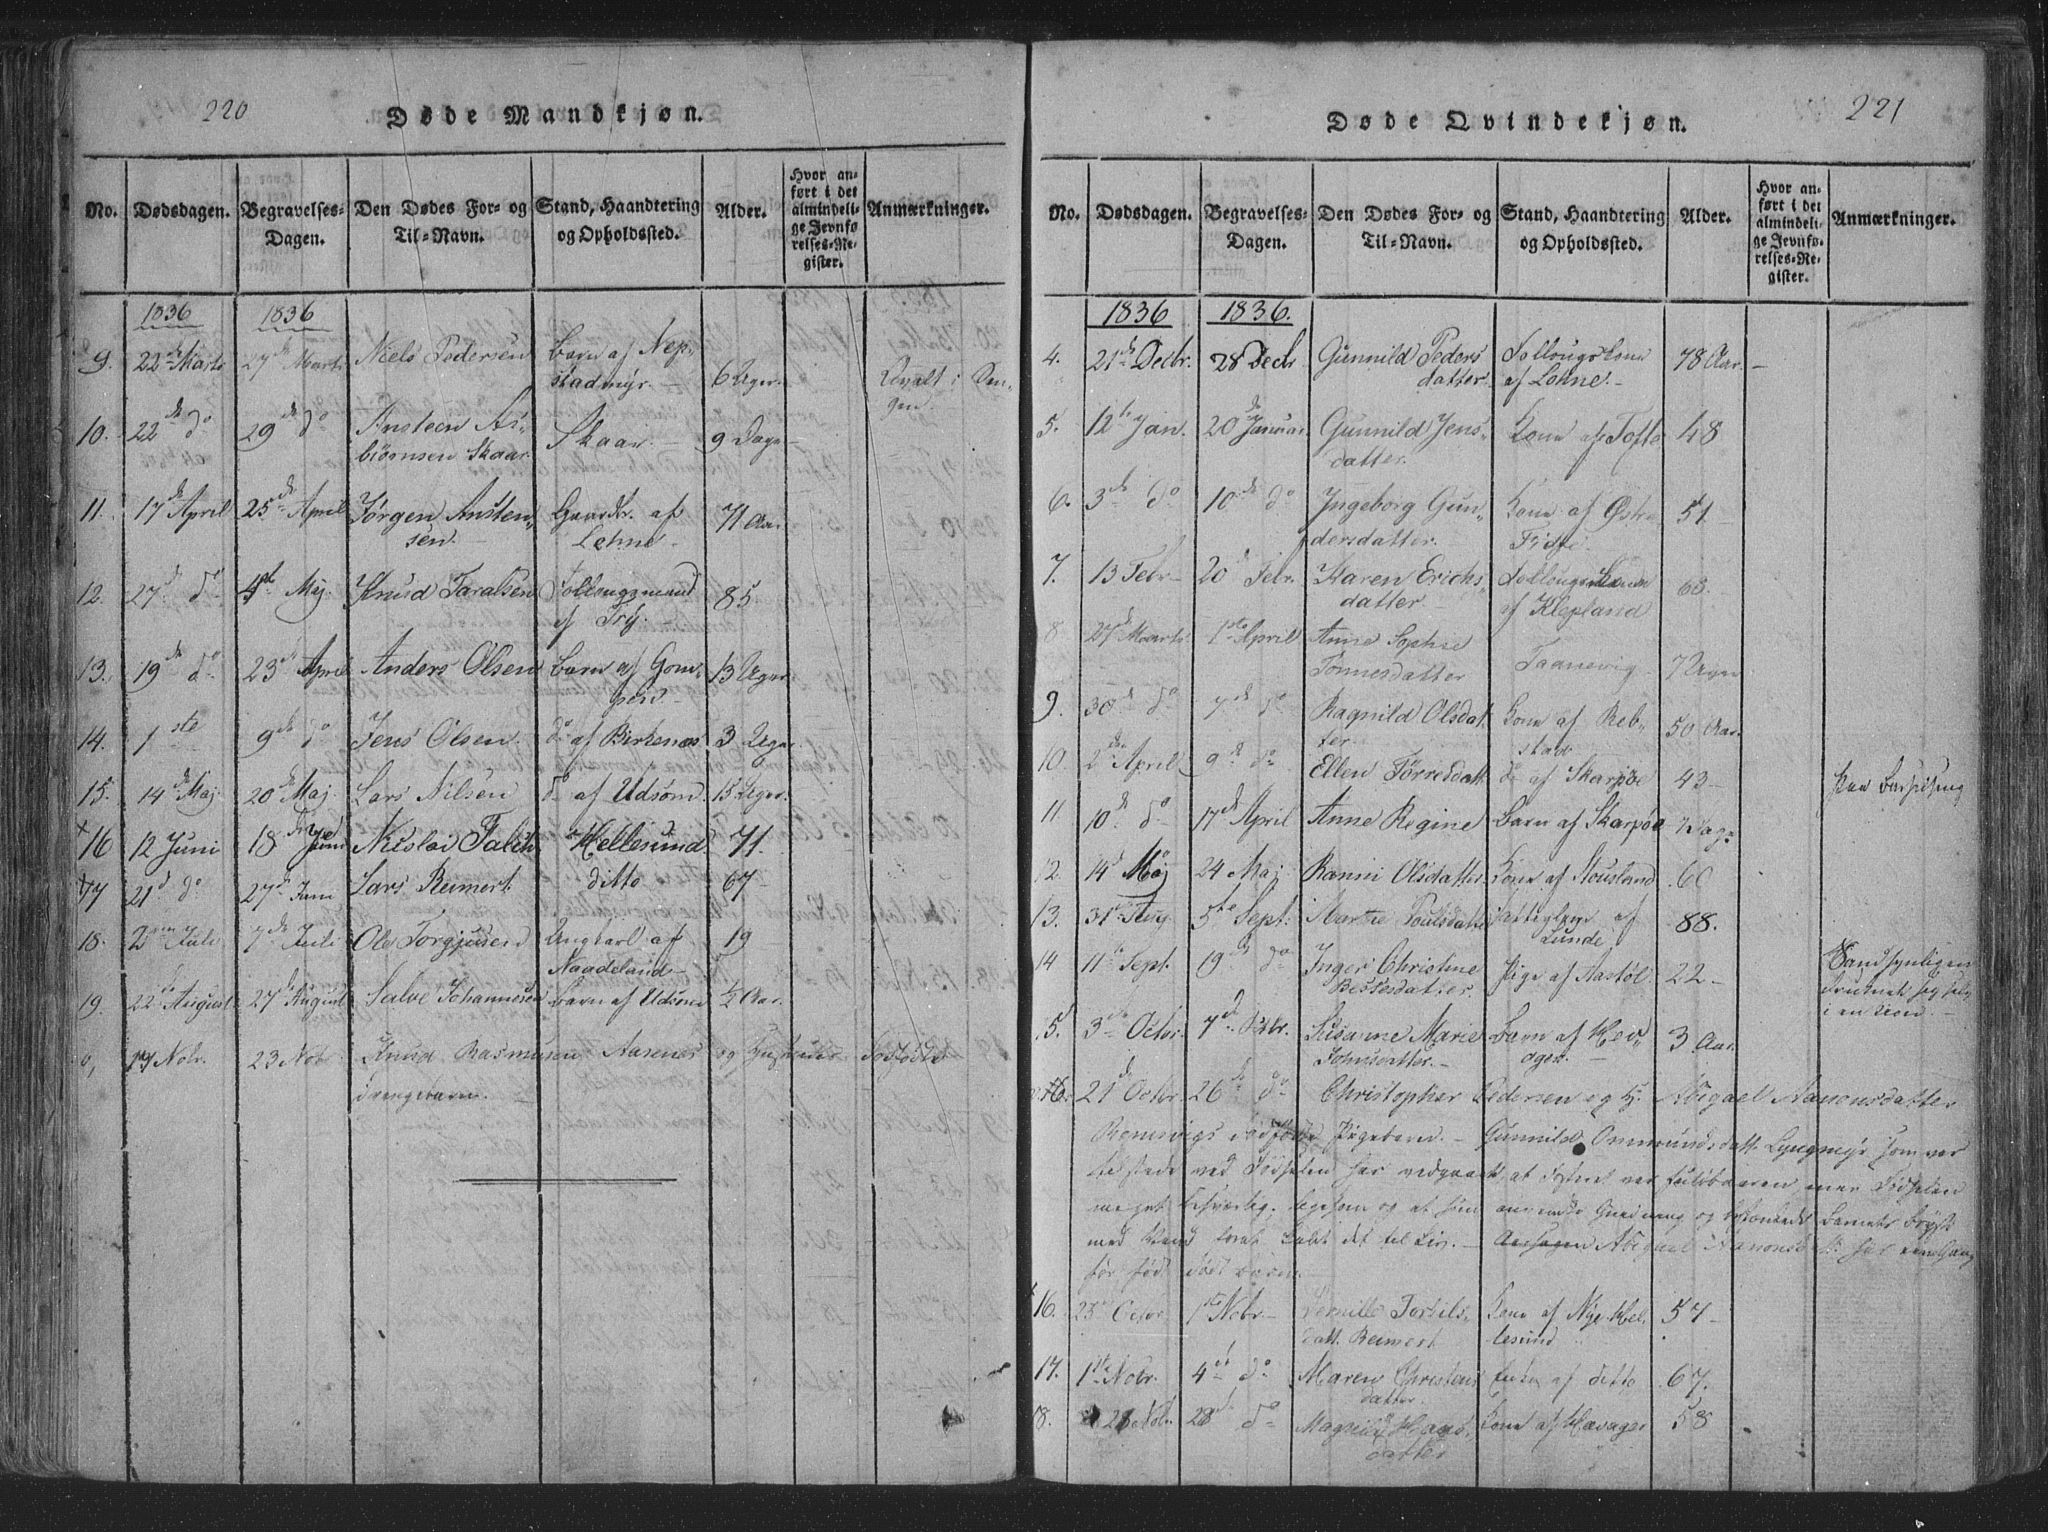 220
Døde Mandkjøn.
No.
Dødsdagen.
Begravelses-
Dagen.
Den Dødes For- og
Til-Navn.
Stand, Haandtering
og Opholdssted.
Alder.
Hvor an-
ført i det
almindeli-
ge Jevnfø-
relses-Re-
gister.
Anmærkninger.
1836
1836
9. 22de Marts 27de Marts Niels Pedersen Barn af Nep-
stadmyr. 6 Uger.
10. 22de do 29de do Ansteen As-
biörnsen Skaar. Skaar. 9 Dage
11. 17de April 25de April Jørgen Ansten-
sen. Gaardbr. af
Lohne 71 Aar.
12. 27de do Maj Knud Taralsen Follougsmand
af Try. 85.
13. 19de do 23de April Anders Olsen Barn af Gom-
13 Uger
14. 1ste 9de do Jens Olsen do af Birkenæs 3 Uger
15. 14de Maj 20de Maj Lars Nilsen do af Udsøm 13 Uger.
16 12 Juni 18 Juni Nicolai Falch Hellesund 71.
17 21d do 27de Juni Lars Reimert ditto 67
18. 2den Juli 7de Juli Ole Torgjusen Ungkarl af
Naadeland 19
19. 22de August 27de August Salve Johannesen Barn af Udsøm ½ Aar.
19 Nobr. 23 Nobr Knud Rasmusen Aasenes og Hustrues dødfødte
drengebarn.
221
Døde Qvindekjøn.
No.
Dødsdagen.
Begravelses-
Dagen.
Den Dødes For- og
Til-Navn.
Stand, Haandtering
og Opholdssted.
Alder.
Hvor an-
ført i det
almindeli-
ge Jevnfø-
relses-Re-
gister.
Anmærkninger.
1836
1836.
4. 21de Decbr. 28 Decbr Gunnild Peders
datter Follougskone
af Lohne. 78 Aar.
5. 12te Jan. 20de Januar Gunnild Jens-
datter. Kone af Tofte 48
6. 3de do 10de do Ingeborg Gun-
dersdatter. Kone af Østre
51
7. 13 Febr 20de Febr. Karen Erichs
datter Follougskone
af Klepland 68.
8 27de Marts 1ste April Anne Sophie
Tönnesdatter Taanevig 7 Uger
9. 30de do 7de do Ragnild Olsdat-
ter Kone af Reb-
stad 50 Aar
10. 2den April 9de do Ellen Tørresdatt do af Skarpöe 43
11. 10de do 17de April Anne Regine Barn af Skarpöe 7 Dage
12. 14d Maj 24 Maj Ranni Olsdatter Kone af Stousland 60
13. 31te Aug 5te Sept. Marthe Poulsdatter af
Lunde 88.
14 11te Sept. 19de do Inger Christine
Pige af Aastøl 22 Sandsynligen
druknet sig selv
15. 3de Octbr. 7de Octbr. Susanne Marie
Johnsdatter. Barn af Hav-
ager. 3 Aar.
21de Octbr. 26de do Christopher Pedersen og H. Abigael Aanonsdatter
Romsvigs dødfødte Pigebarn. Gunnild Ommundsdatt. Lyngmyr som var
tilstede ved Fødselen har vedgaaet, at Fosteret var fuldbaaren, men Fødselen
meget besværlig, og at hun anvendte Gnidning og Barnets Bryst
med Vand forat kalde det til Liv. Abigael Aanonsd. har
før født dødt barn.
16. 25 Octbr 1ste Nobr. Pernille Torkils-
datt. Reimert Kone af Nye Hel-
lesund 57
17. 1ste Nobr. 4de do Maren Christens
datter. Enke af ditto 67.
18. 23 Nob. 28de do Magnild Hans
datter Kone af Havager 58